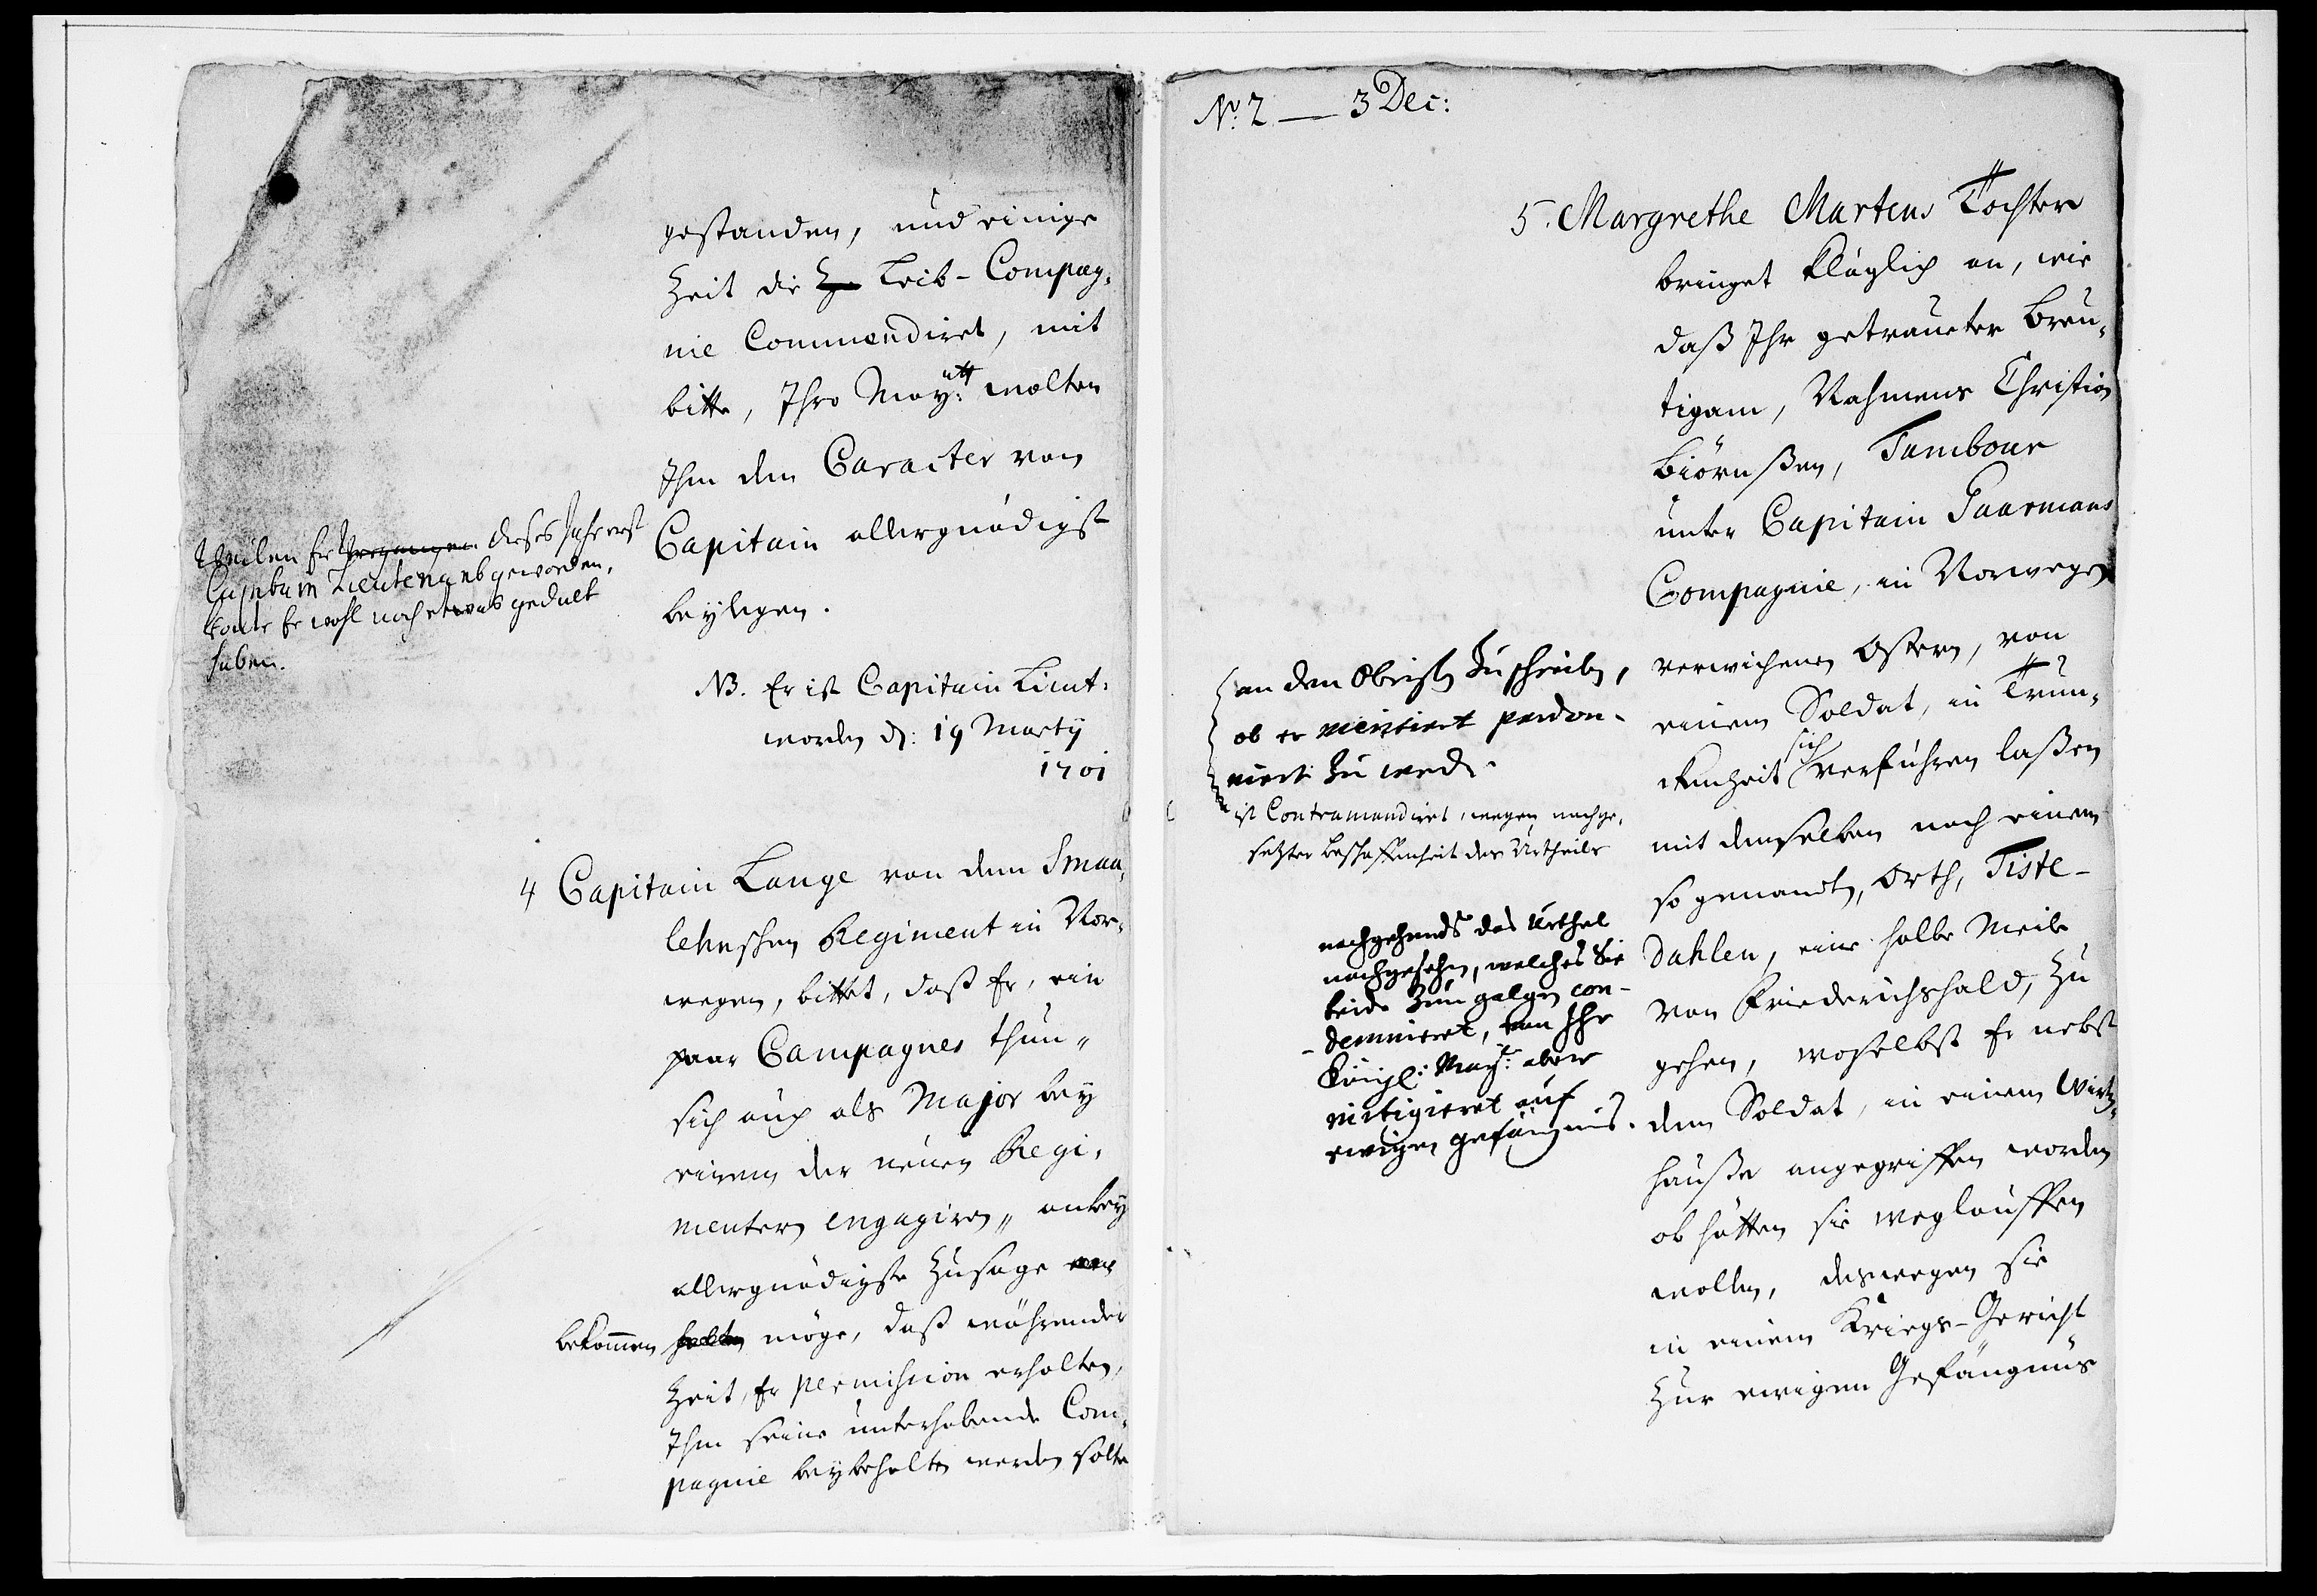 gestanden, und einige
Zeit die Leib-Compag-
nie Commendiret, mit
bitte, Ihro Mayᵗᵗ: wolten
Ihm den Caracter von
Capitain allergnädigst
beylegen.
Weilen Er Vergangen dieses Jahr erst
Capitain Lieutenant geworden,
konte Er wohl noch etwas gedult
haben.
NB. Er ist Capitain Lieut:
worden d: 19 Martij
1701
4 Capitain Lange von dem Smaa-
lehnschen Regiment in Nor-
wegen, bittet, daß Er, ein
paar Campagnes thun,,
sich auch als Major bey
einem der neuen Regi-
menter engagiren,, anbey
allergnädigste Zusage
bekommen möge, daß währender
Zeit, Er permission erhalten,
Ihm seine unterhabende Com-
pagnie beybehalten werden solte
No: 2 — 3 Dec:
5. Margrethe Martens Tochter
bringet kläglich an, wie
daß Ihr getraueter Breu-
tigam, Nahmens Christian
Biörnßen, Tambour
unter Capitain Gaarmans
Compagnie, in Norwegen
verwichenen Ostern, von
einem Soldat, in Trun-
ckenheit sich verführen laßen
mit demselben nach einem
so genandten, Orth, Tiste-
dahlen, eine halbe Meile
von Friederichshald, zu
gehen, woselbst Er nebst
dem Soldat, in einem Wirts-
hauße angegriffen worden
ob hätten sie weglauffen
wollen, deswegen sie
in einem Kriegs-Gericht
zur ewigen Gefängnüs
an den Obristen zu schreiben,
ob er meritiret pardon-
niert zu werden.
ist Contramandiret, wegen nachge-
setzter beschaffenheit des Urtheils
nachgehends das Urthel
nachgesehen, welches Sie
beide zum galgen con-
demnieret, von Ihr
Königl: Mayt: aber
mitigieret auf
ewigen gefängnis.